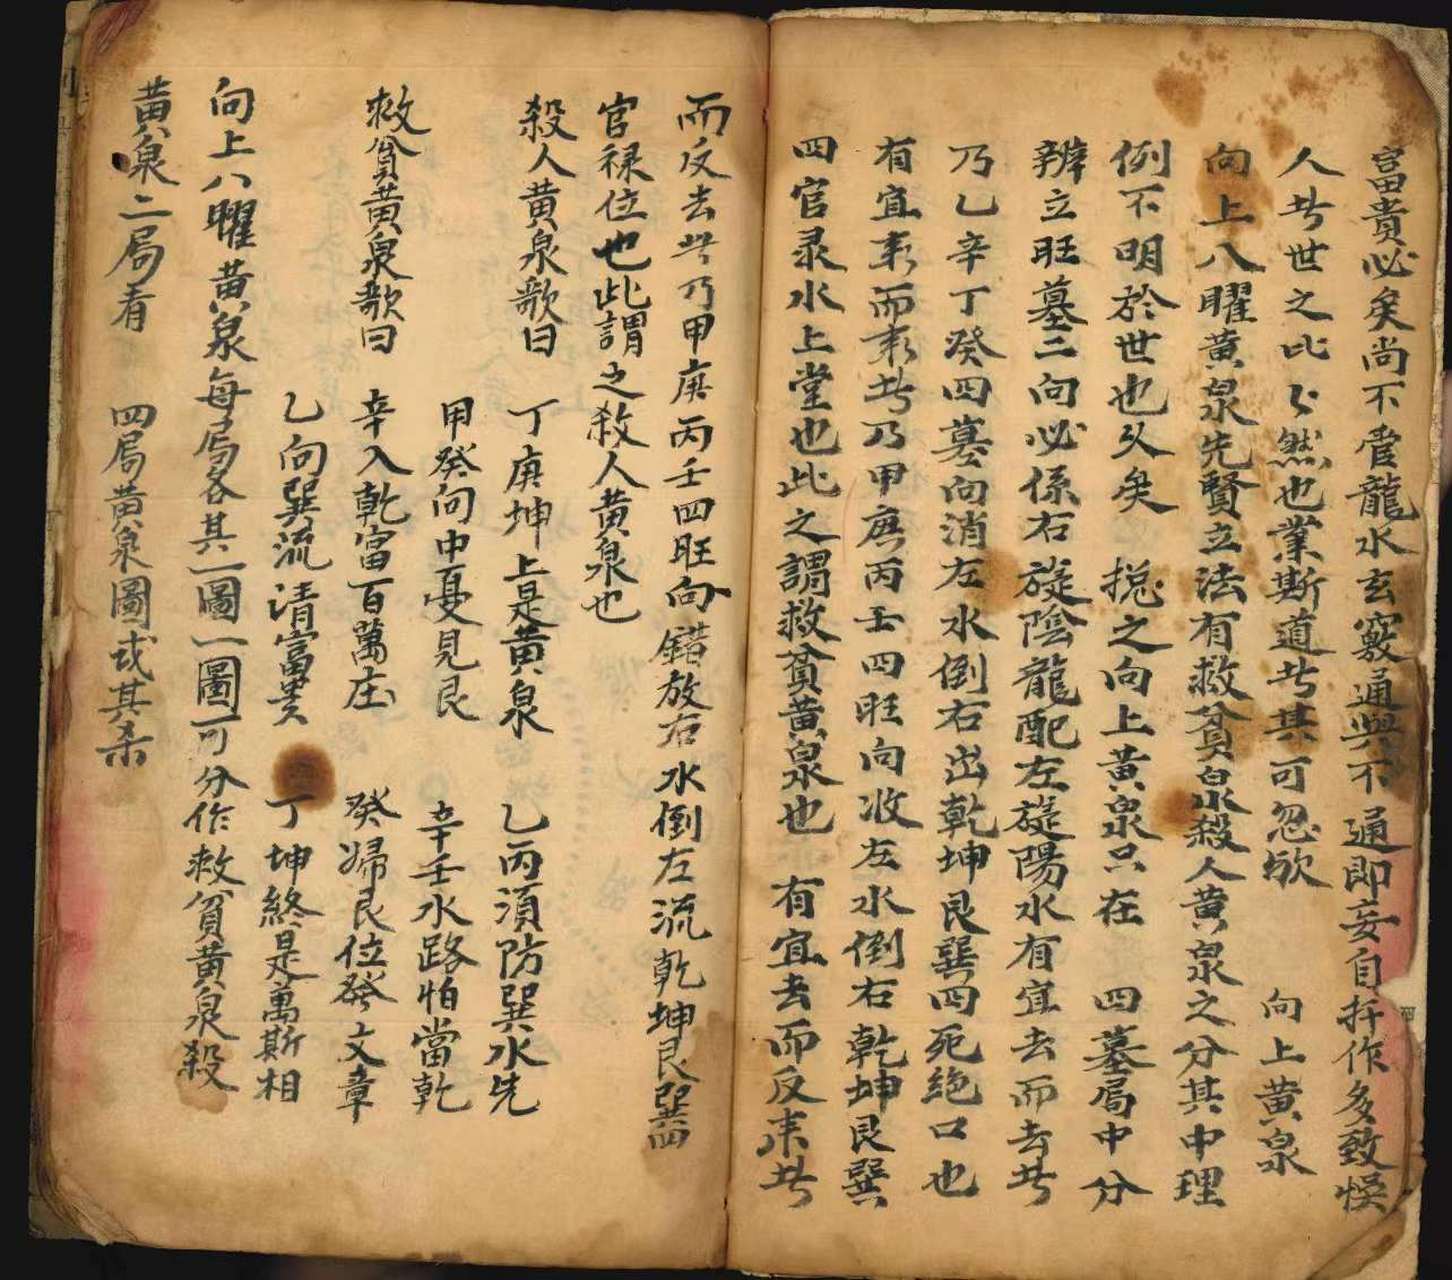 富貴必矣尚不曾龍水玄竅通與不通即妄自扦作多致悞
人者世之比比然也業斯道者其可忽欤　向上黃泉
向上八曜黃泉先賢立法有救貧泉水殺人黃泉之分其中理
例不明於世也久矣　揔之向上黃泉只在　四墓局中分
辨立旺墓二向必係右旋陰龍配左旋陽水有宜去而去者
乃乙辛丁癸四墓向消左水倒右出乾坤艮巽四死絕口也
有宜来而来者乃甲庚丙壬四旺向收左水倒右乾坤艮巽
四官录水上堂也此之謂救貧黃泉也　有宜去而反来者
而反去者乃甲庚丙壬四旺向錯放右水倒左流乾坤艮巽四
官禄位也此謂之殺人黃泉也
殺人黃泉歌曰　丁庚坤上是黃泉　乙丙須防巽水先
甲癸向中憂見艮　辛壬水路怕當乾
救貧黃泉歌曰　辛入乾宮百萬庄　癸婦艮位發文章
乙向巽流清富貴　丁坤終是萬斯相
向上八曜黃泉每局各其一圖一圖可分作救貧黃泉殺
黃泉二局看　四局黃泉圖式其禾